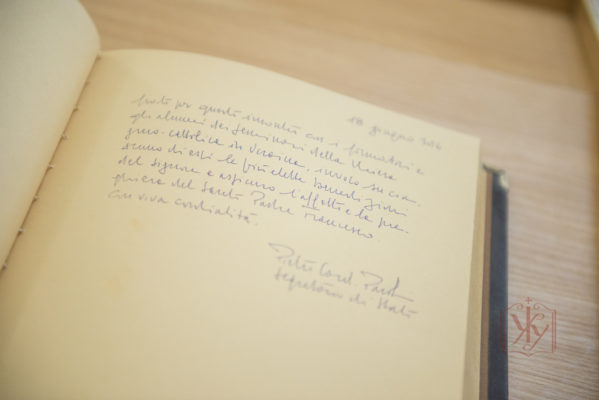 18 giugno 2016
Grato per questo incontro con i formatori e
gli alunni dei Seminari della Chiesa
greco-cattolica in Ucraina, invoco su cia-
scuno di essi le più elette benedizioni
del Signore e assicuro l'affetto e la pre-
ghiera del Santo Padre Francesco.
Con viva cordialità.
Pietro Card. Parolin
Segretario di Stato